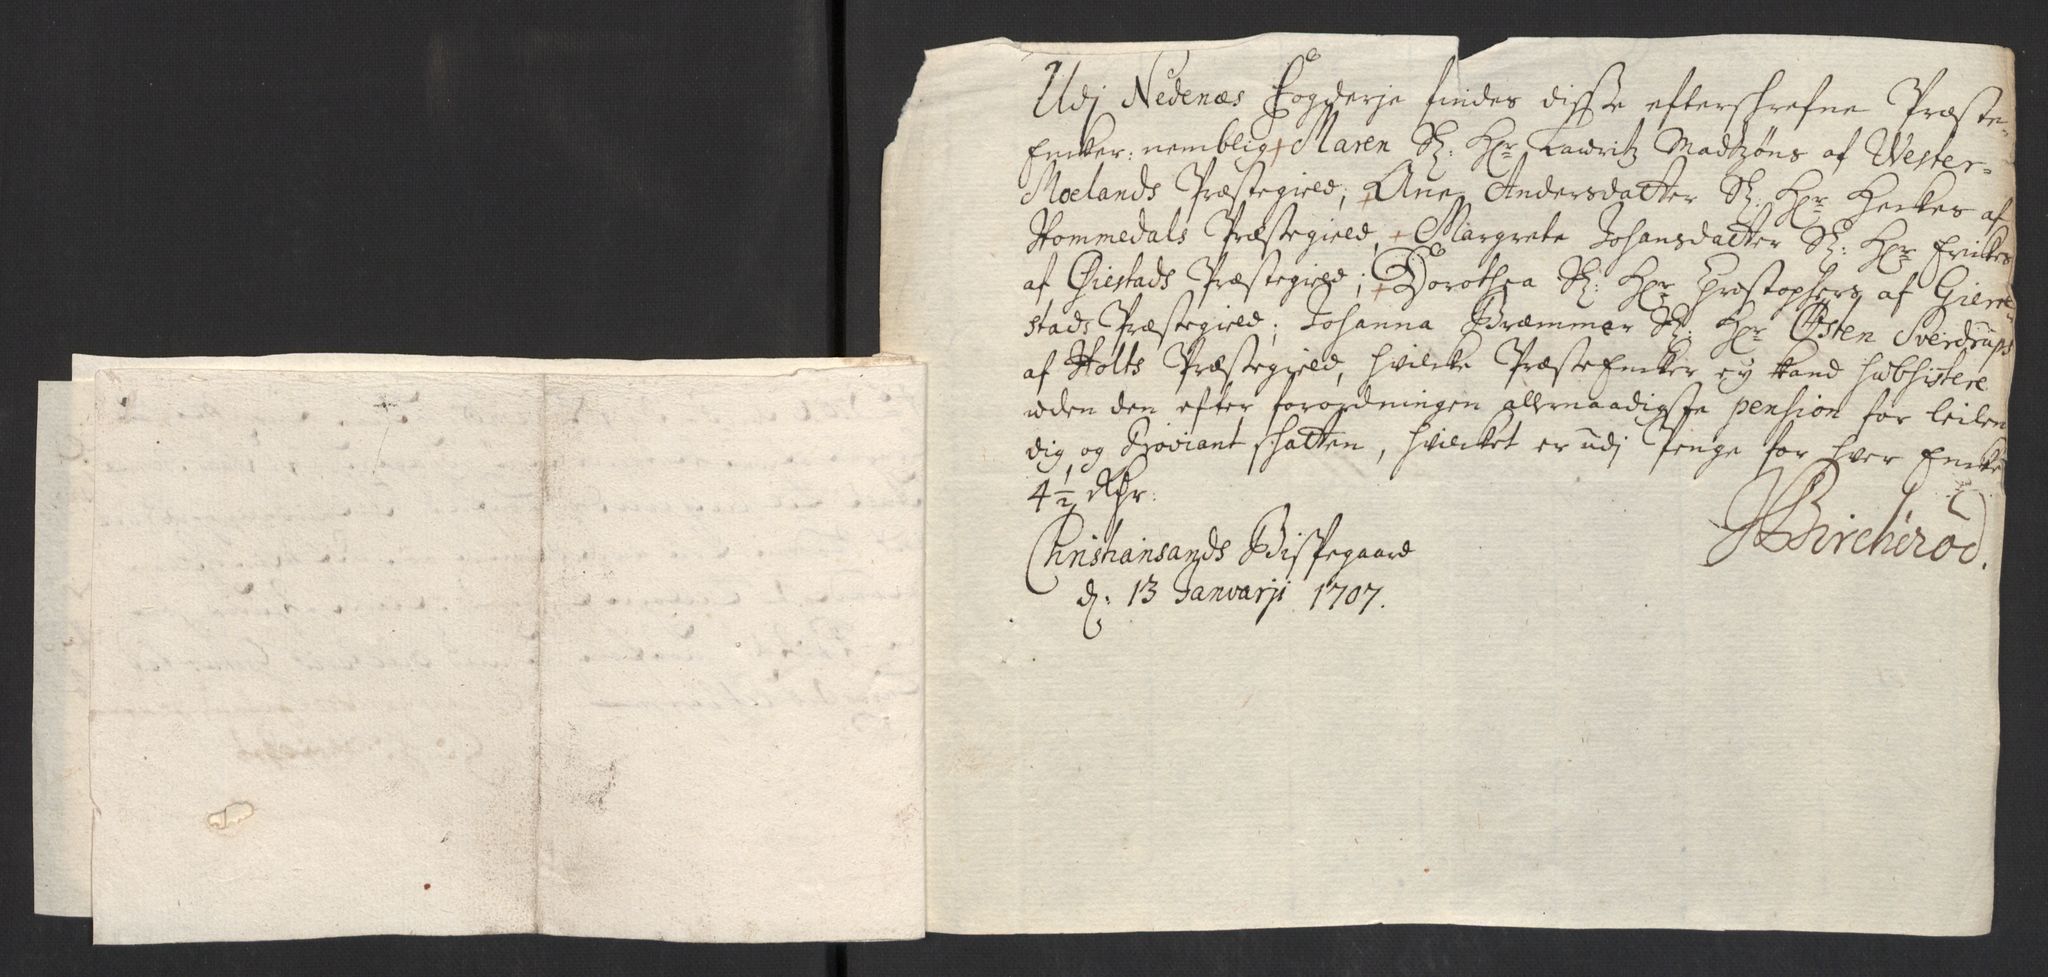 Udj Nedenæs Fogderje findes disse efterschrefne Præste-
Encker: nemblig + Maren Sl: Hr. Lauritz Madtzøns af Wester-
Moelands Præstegield; + Ane Andersdatter Sl. Hr. Henckes af
Hommedals Præstegield, + Margrete Johansdatter Sl: Hr.
af Øiestads Præstegield; + Dorothea Sl: Hr. Christophers af Gierre
stads Præstegield; Johanna Bræmmer Sl: Hr. Østen Sverdrups
af Holts Præstegield, hvilcke Præste Encker ey kand subsistere
uden den efter forordningen allernaadigste pension for leilen
dig og Proviant schatten, hvilcket er udj Penge for hver Encke
4½ Rdr:
JBircherod.
Christiansands Bispegaard
d: 13 Januarji 1707.